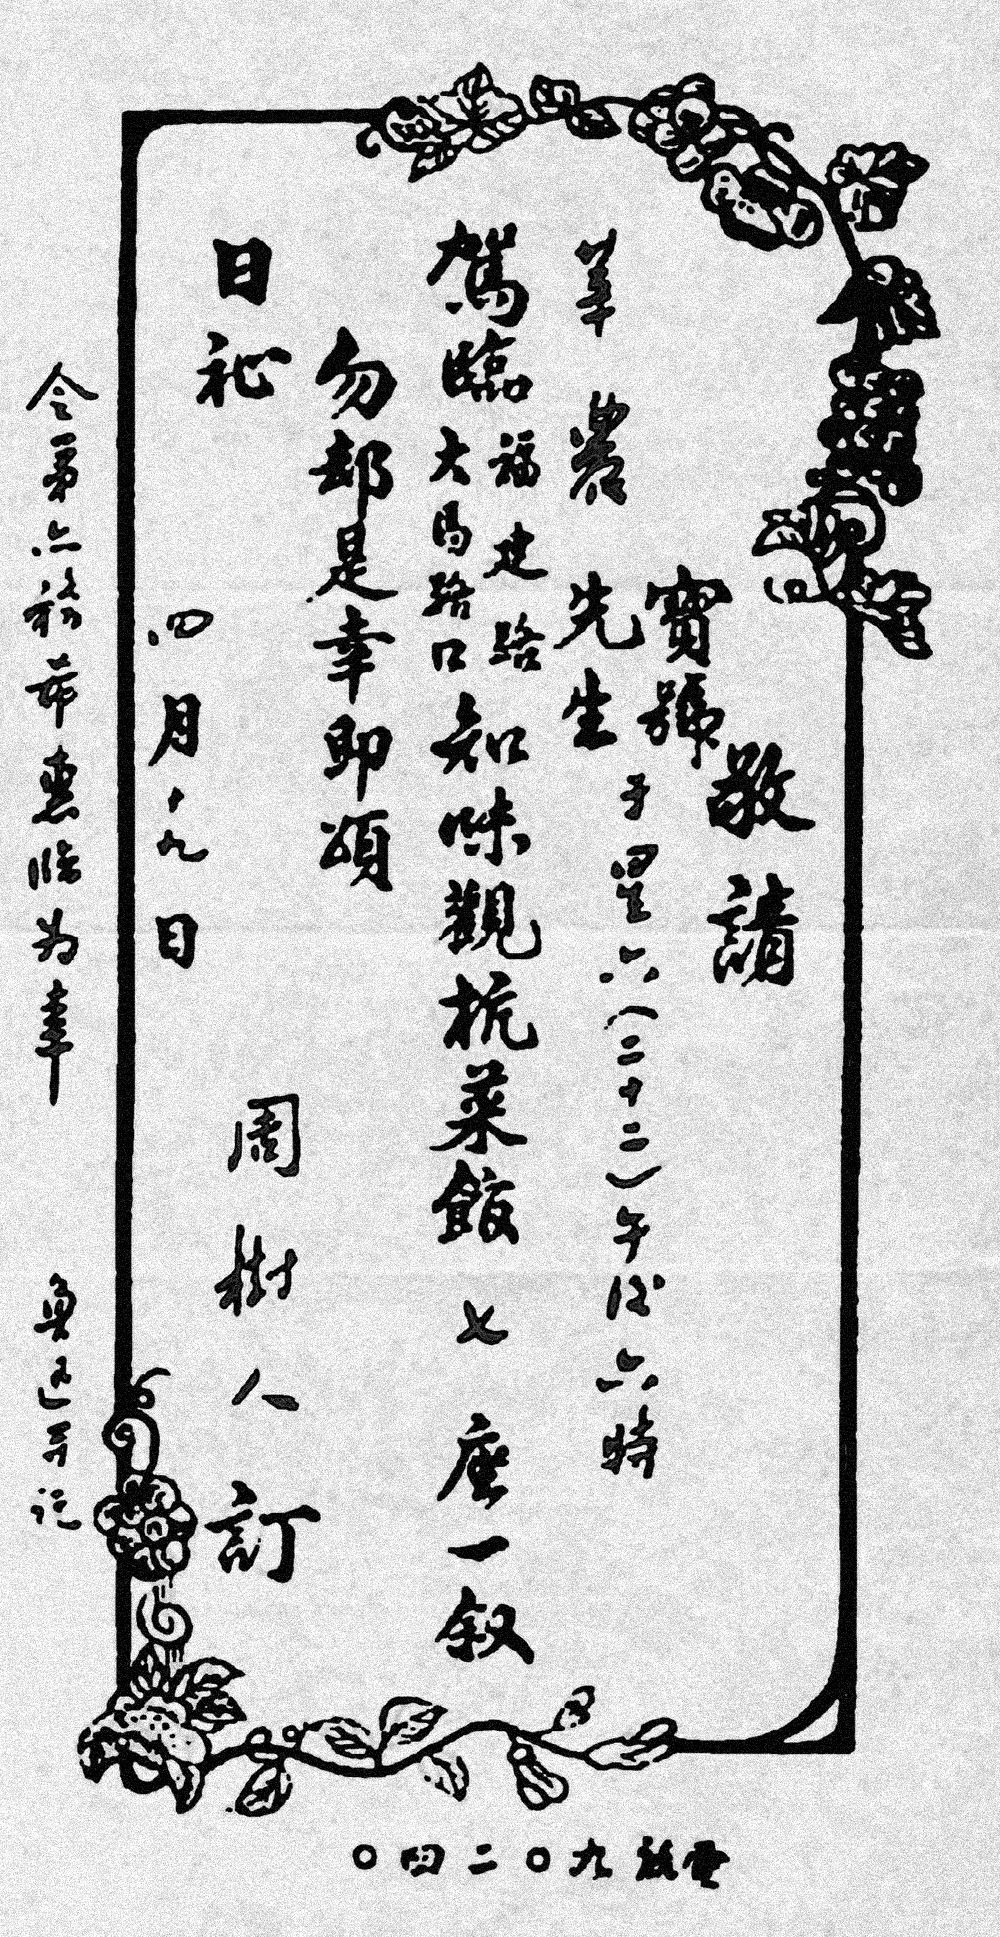 敬請
寶號
羊蕘先生于星六(二十二)午後六時
駕臨
福建路
大馬路口
知味觀杭菜館七座一叙
勿却是幸即頌
日祉
周樹人訂
四月十九日
令弟亦希惠臨为幸
魯迅並託
電話九〇二四〇